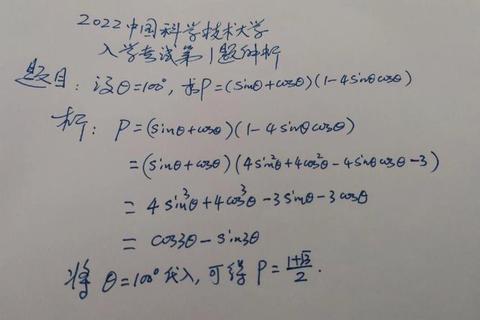 2022中国科学技术大学
入学考试第1题解析
题目：设θ=100°，求P=(sinθ+cosθ)(1-4sinθcosθ)
析：P=(sinθ+cosθ)(1-4sinθcosθ)
=(sinθ+cosθ)(4sin²θ+4cos²θ-4sinθcosθ-3)
=4sin³θ+4cos³θ-3sinθ-3cosθ
=cos3θ-sin3θ
将θ=100°代入，可得P=\frac{1+\sqrt{3}}{2}.